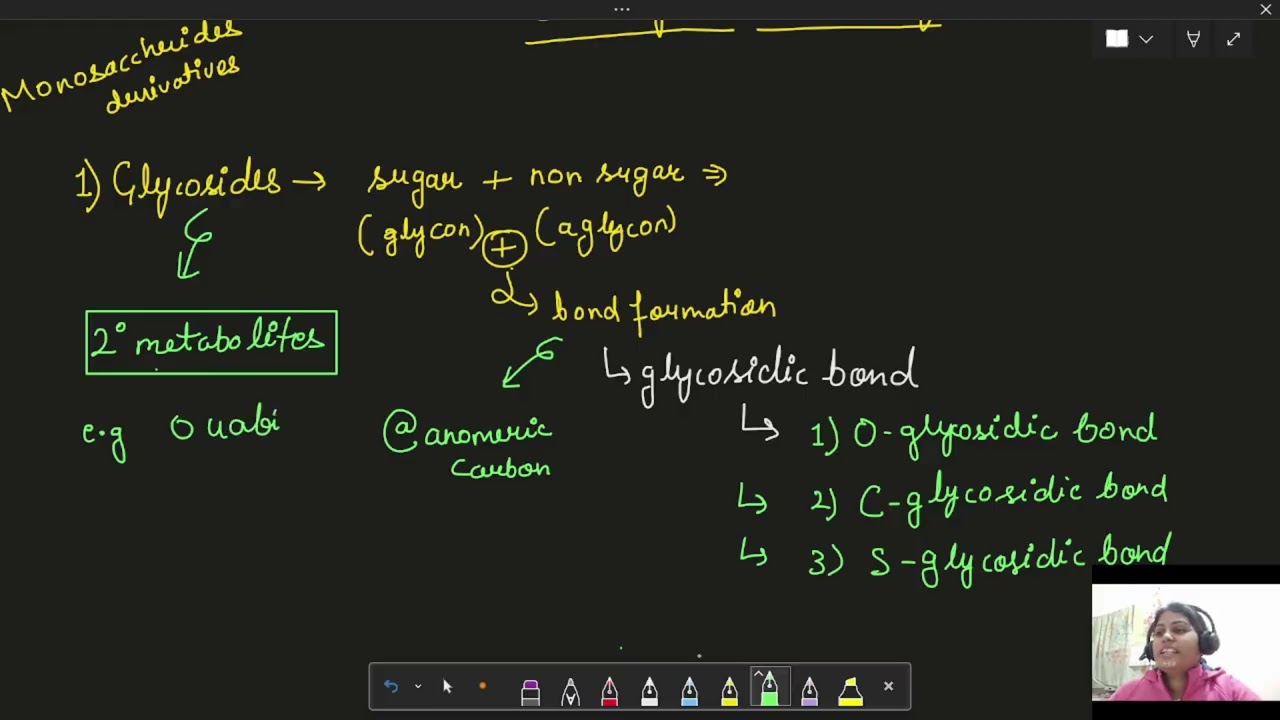 Monosaccherides
derivatives
1) Glycosides → sugar + non sugar ⇒
(glycon) + (aglycon)
bond formation
2° metabolites
↳ glycosidic bond
e.g Ouabi
@ anomeric
carbon
↳ 1) O-glyosidic bond
↳ 2) C-glycosidic bond
↳ 3) S-glycosidic bond